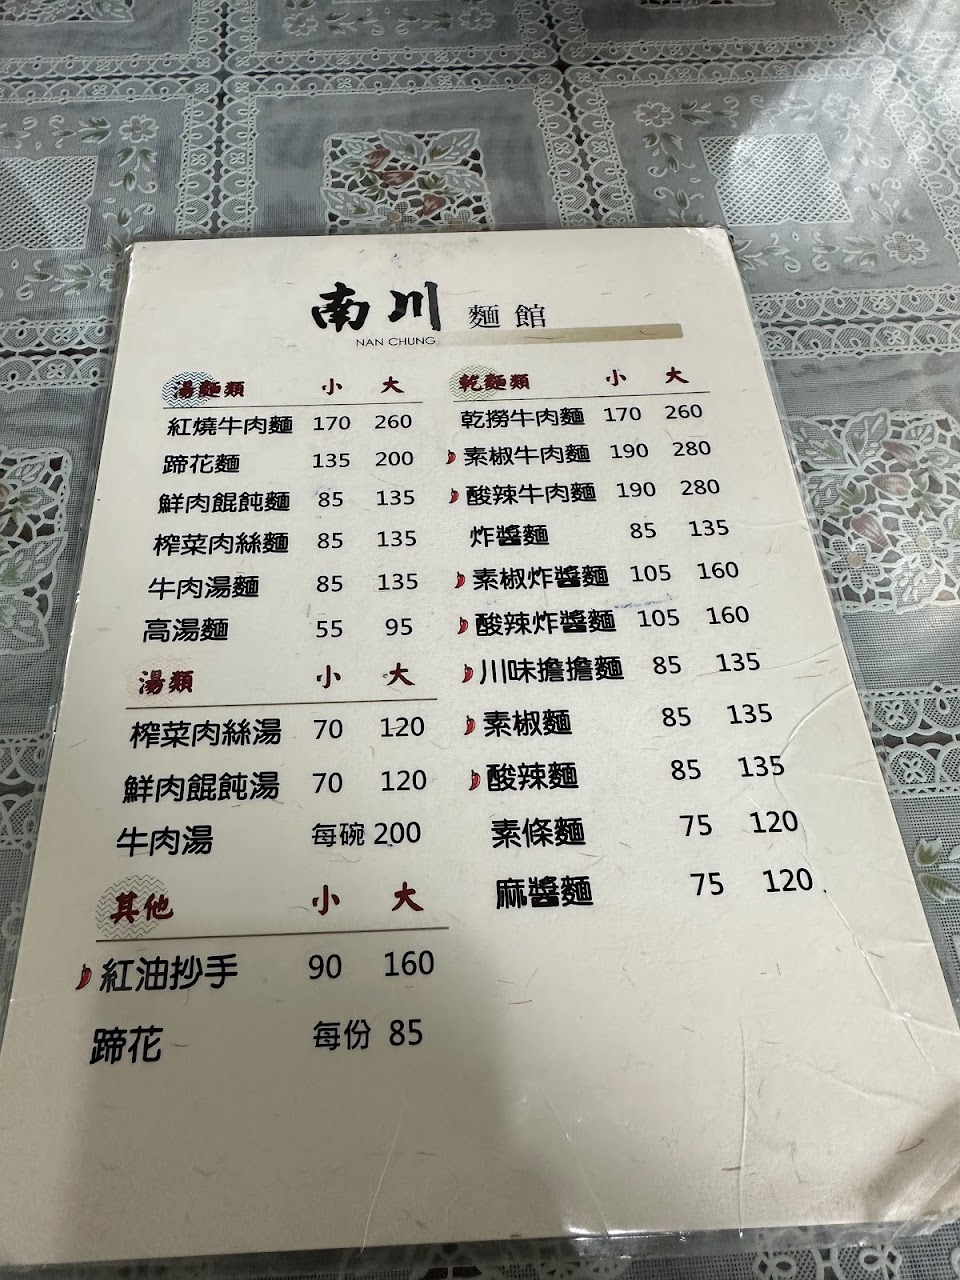 南川 麵館
NAN CHUNG
湯麵類 小 大
紅燒牛肉麵 170 260
蹄花麵 135 200
鮮肉餛飩麵 85 135
榨菜肉絲麵 85 135
牛肉湯麵 85 135
高湯麵 55 95
湯類 小 大
榨菜肉絲湯 70 120
鮮肉餛飩湯 70 120
牛肉湯 每碗 200
其他 小 大
紅油抄手 90 160
蹄花 每份 85
乾麵類 小 大
乾撈牛肉麵 170 260
素椒牛肉麵 190 280
酸辣牛肉麵 190 280
炸醬麵 85 135
素椒炸醬麵 105 160
酸辣炸醬麵 105 160
川味擔擔麵 85 135
素椒麵 85 135
酸辣麵 85 135
素條麵 75 120
麻醬麵 75 120